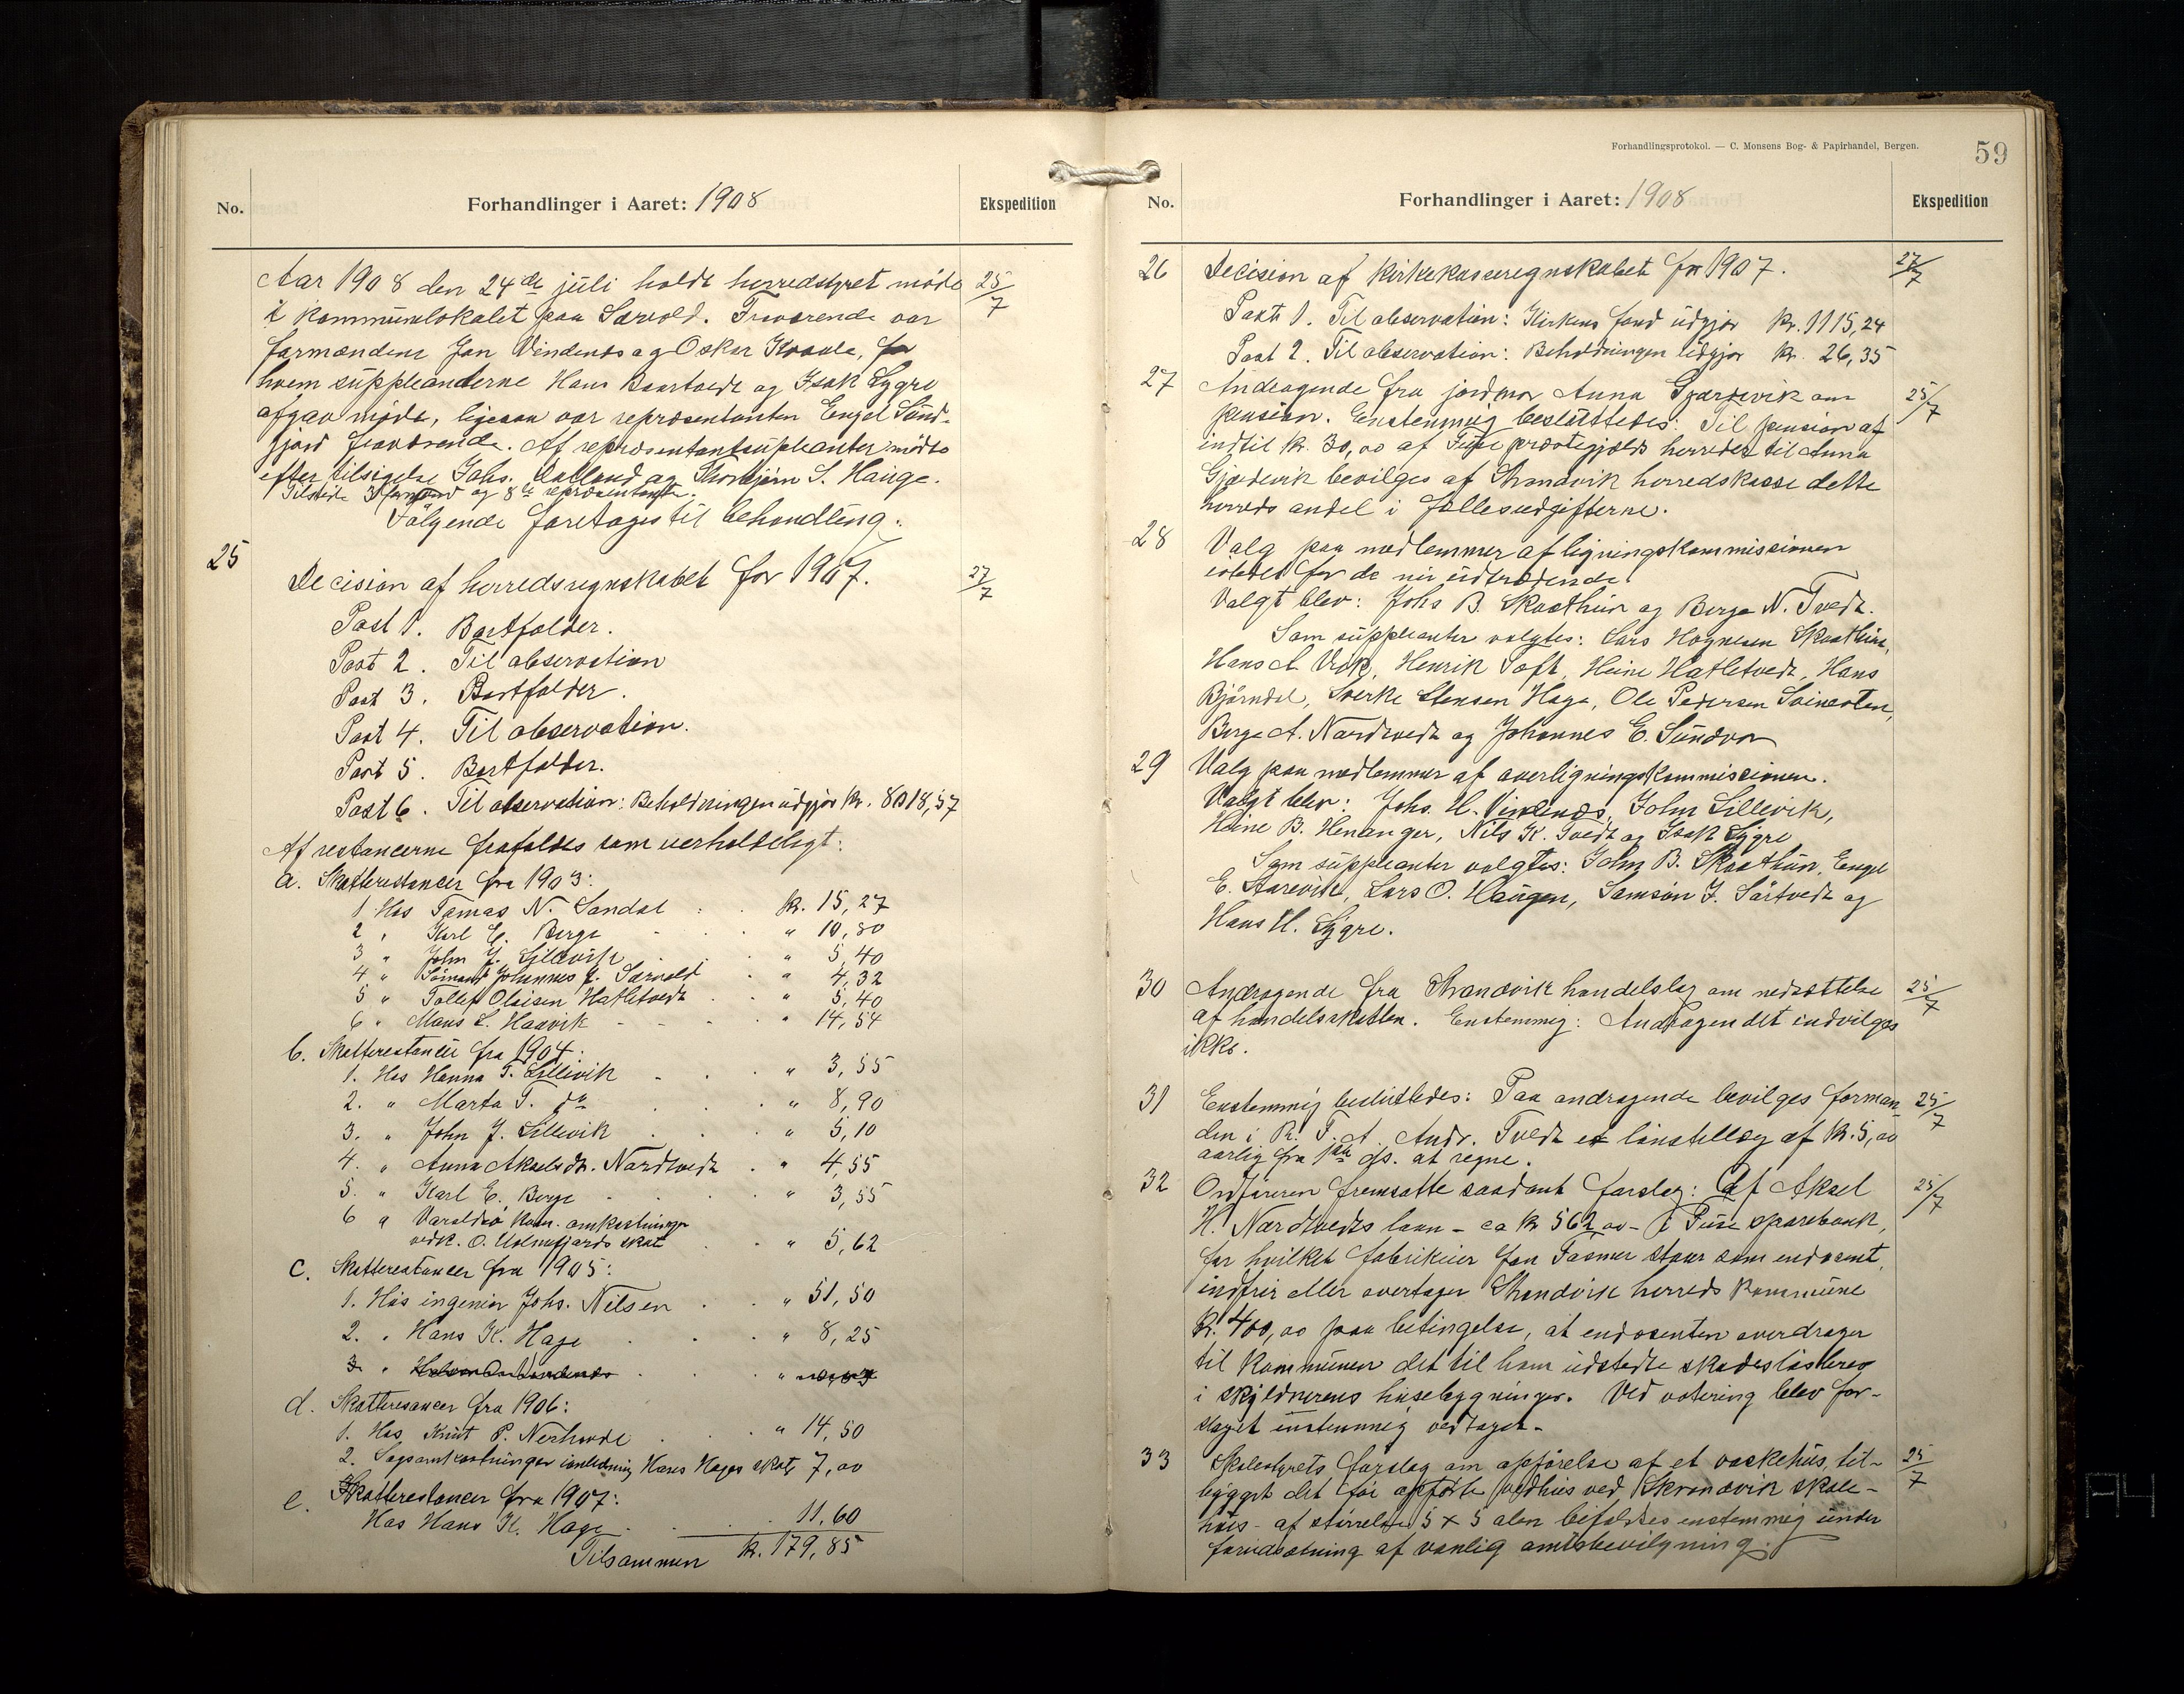 No.
Forhandlinger i Aaret: 1908
Ekspedition
Aar 1908 den 24de juli holdt herredstyret møde 25/7
i kommunelokalet paa Sævold. Fraværende var
formændene Jan Vindenes og Oskar Kvaale, for
hvem suppleanterne Hans Baartvedt og Isak Lygre
afgav møde, ligesaa var repræsentanten Engel Sund-
fjord fraværende. Af repræsentantsupleanter mødte
efter tilsigelse Johs. Dalland og Thorbjørn S. Hauge.
Tilstede 3 formænd og 8te repræsentanter.
Følgende foretages til behandling:
25
Decision af herredsregnskabet for 1907. 27/7
Post 1. Bortfalder.
Post 2. Til observation
Post 3. Bortfalder.
Post 4. Til observation.
Post 5. Bortfalder.
Post 6. Til observation: Beholdningen udgjør kr. 8018,57
Af restancerne frafaldes som uerholdeligt:
a. Skatterestancer fra 1903:
1 Hos Tomas N. Sandal kr. 15,27
2 " Karl E. Berge " 10,80
3 " John J. Lillevik " 5,40
4 " Sømand Johannes J. Sævold " 4,32
5 " Tollef Olsisen Hatletvedt " 5,40
6 " Mons L. Haavik " 14,54
b. Skatterestancer fra 1904:
1. Hos Hanna T. Lillevik " 3,55
2. " Marta T. do " 8,90
3. " John J. Lillevik " 5,10
4. " Anna Akselsdr. Nordtvedt " 4,55
5. " Karl E. Berge " 3,55
6 " Varaldsø kom. omkostninger
vedk. O. Holmefjords skat " 5,62
c. Skatterestancer fra 1905:
1. Hos ingeniør Johs. Nilsen " 51,50
2. " Hans K. Hage " 8,25
3 "
d. Skatteresancer fra 1906:
1. Hos Knut P. Nerhovde " 14,50
2. Sagsomkostninger i anledning Hans Hages skat 7,00
e. Skatterestancer fra 1907:
Hos Hans K. Hage 11,60
Tilsammen kr. 179,85
Forhandlingsprotokol. — C. Monsens Bog- & Papirhandel, Bergen.
59
No.
Forhandlinger i Aaret: 1908
Ekspedition
26 Decision af kirkekasseregnskabet for 1907. 27/7
Post 1. Til observation: Kirkens fond udgjør kr. 1115,24
Post 2. Til observation: Beholdningen udgjør kr. 26,35
27 Andragende fra jordmor Anna Gjærdevik om 25/7
pension. Enstemmig besluttedes: Til pension af
indtil kr. 30,00 af Fuse præstegjælds herreder til Anna
Gjærdevik bevilges af Strandvik herredskasse dette
herreds andel i fællesudgifterne.
28 Valg paa medlemmer af ligningskommissionen
istedet for de nu udtrædende.
Valgt blev: Johs B. Skaathun og Berge N. Tvedt.
Som suppleanter valgtes: Lars Hognesen Skaathun,
Hans A. Vik, Henrik Toft, Heine Hatletvedt, Hans
Bjørndal, Sverke Stensen Hage, Ole Pedersen Soinesten,
Berge A. Nordtvedt og Johannes E. Sundvor
29 Valg paa medlemmer af overligningskommissionen.
Valgt blev: Johs. H. Vindenes, John Lillevik,
Heine B. Henanger, Nils K. Tvedt og Isak Lygre
Som suppleanter valgtes: John B. Skaathun, Engel
E. Aarevik, Lars O. Haugen, Samson J. Sørtvedt og
Hans H. Lygre.
30 Andragende fra Strandvik handelslag om nedsættelse 25/7
af handelsskatten. Enstemmig: Andragendet indvilges
ikke.
31 Enstemmig besluttedes: Paa andragende bevilges forman- 25/7
den i R. T. A. Andr. Tvedt et lønstillæg af kr. 5,00
aarlig fra 1ste ds. at regne.
32 Ordføreren fremsatte saadant forslag: Af Aksel 25/7
H. Nordtvedts laan – ca kr 562,00 – i Fuse sparebank,
for hvilket fabrikeier Jan Fasmer staar som endosent,
indfrir eller overtager Strandvik herreds kommune
kr. 400,00 paa betingelse, at endosenten overdrager
til kommunen det til ham udstedte skadesløsbrev
i skyldnerens husebygninger. Ved votering blev for-
slaget enstemmig vedtaget.
33 Skolestyrets forslag om opførelse af et vaskehus, til- 25/7
bygget det før opførte vedhus ved Strandvik skole-
hus – af størrelse 5 x 5 alen bifaldtes enstemmig under
forudsætning af vanlig amtsbevilgning.